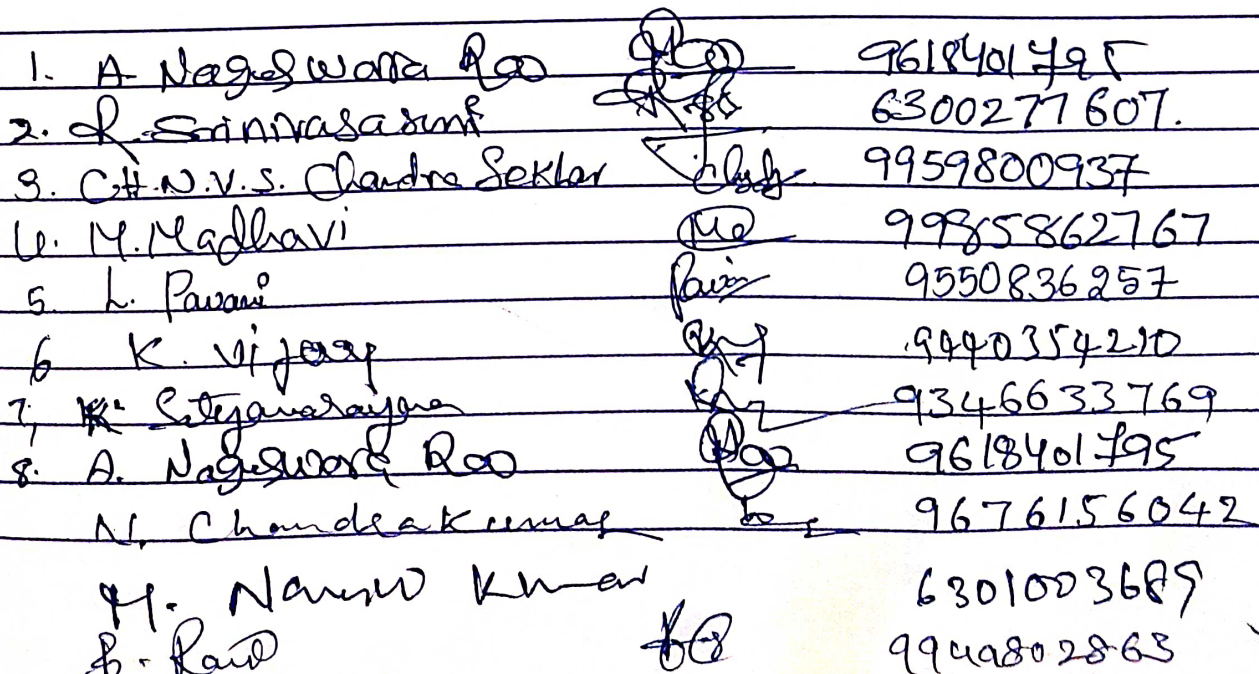 1. A Nageswara Rao 9618401795
2. R. Srinivasarao 6300277607.
3. CH.N.V.S. Chandra Sekhar 9959800937
4. M. Madhavi 99855862767
5. L. Pavani Pavani 9550836257
6 K. Vijay 9440354210
7, K. Satyanarayana 9346633769
8. A. Nageswara Rao 9618401795
N. Chandra Kumar 9676156042
M. Kumar 6301003689
B. 9949802863